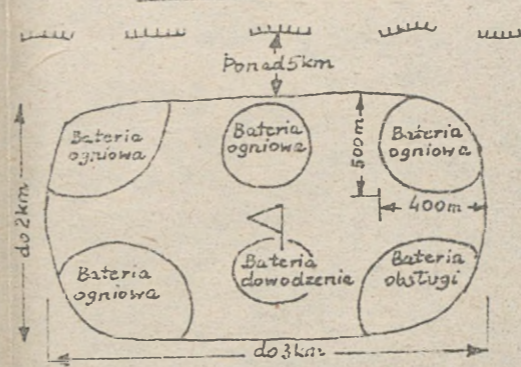 Ponad 5km
Bateria
ogniowa
Bateria
ogniowa
Bateria
ogniowa
500m
400m
do 2km
Bateria
ogniowa
Bateria
dowodzenia
Bateria
obsługi
do 3km